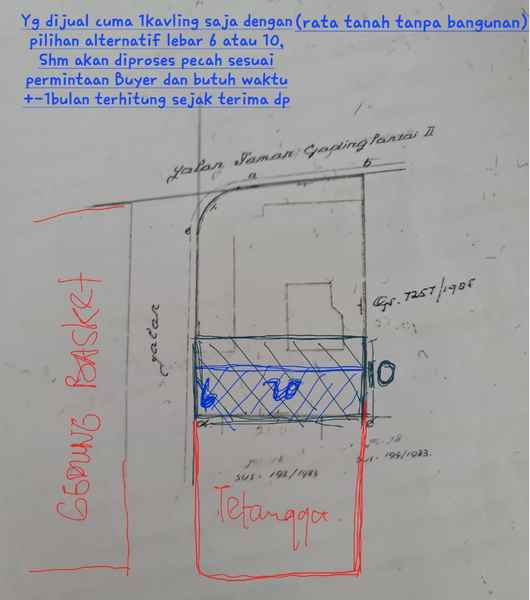 Yg dijual cuma 1kavling saja dengan (rata tanah tanpa bangunan)
pilihan alternatif lebar 6 atau 10,
Shm akan diproses pecah sesuai
permintaan Buyer dan butuh waktu
+-1bulan terhitung sejak terima dp
Jalan Taman Gading Pantai II
a
b
e
jalan
GEDUNG BASKET
10
6
20
d
c
sus. 199/1983.
sus. 198/1983
Tetangga